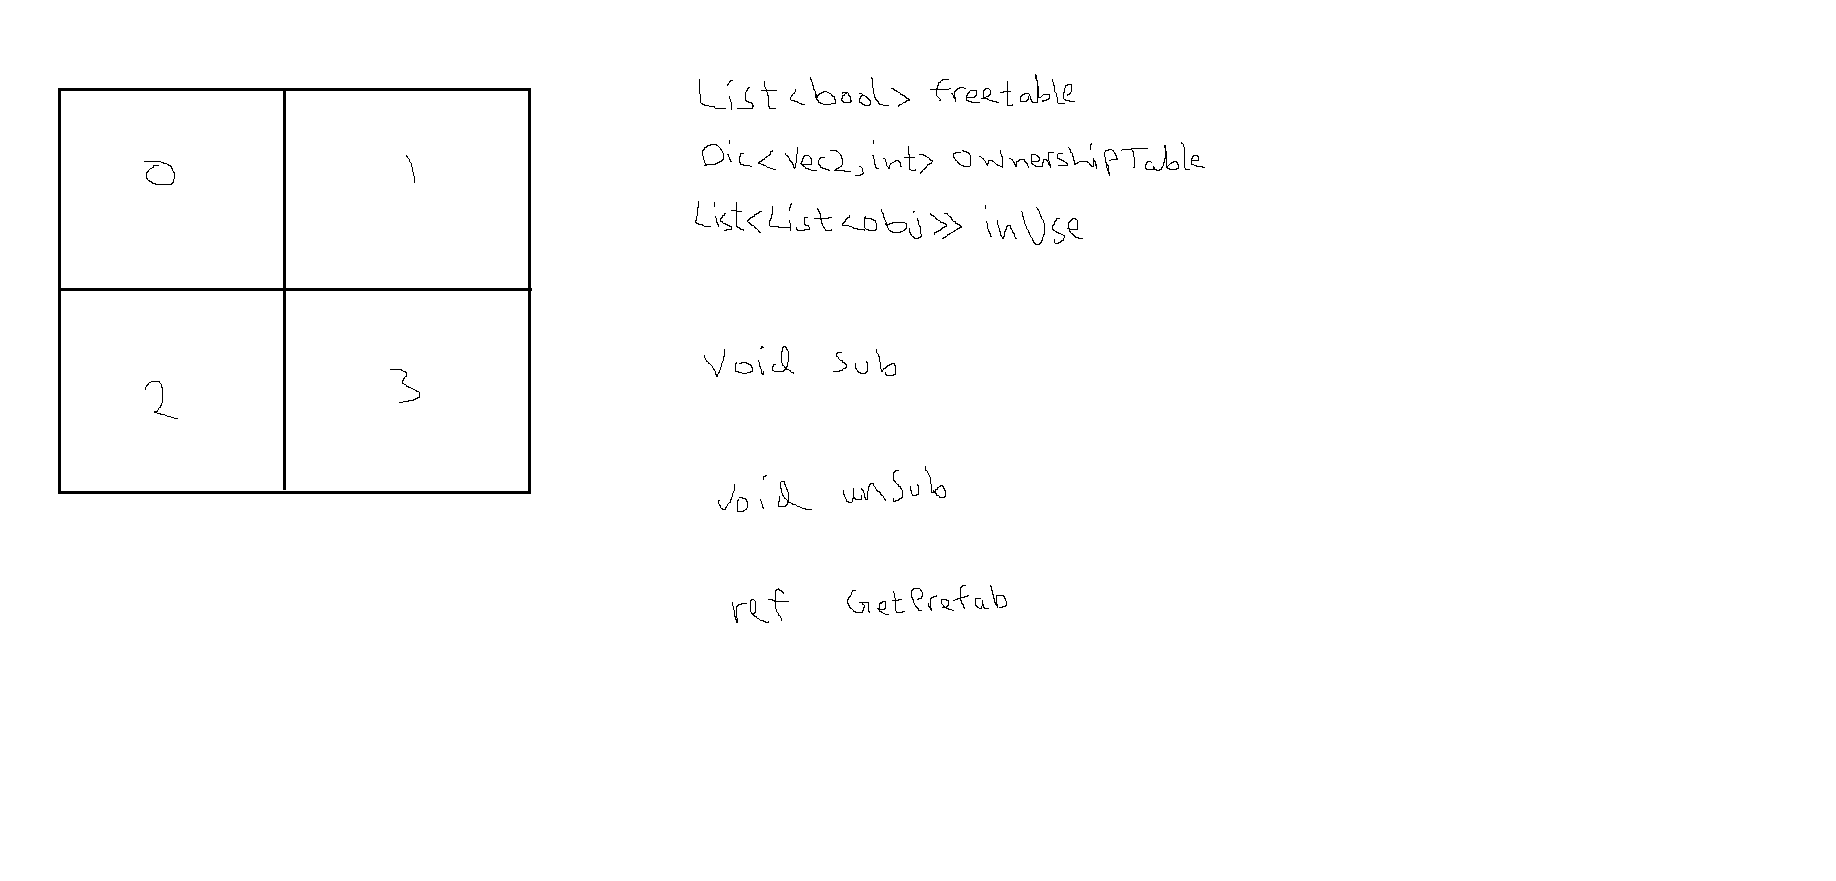 0 1
2 3
List<bool> freetable
Dic<Vec2,int> ownershipTable
List<List<obj>> inUse
void sub
void unSub
ref GetPrefab